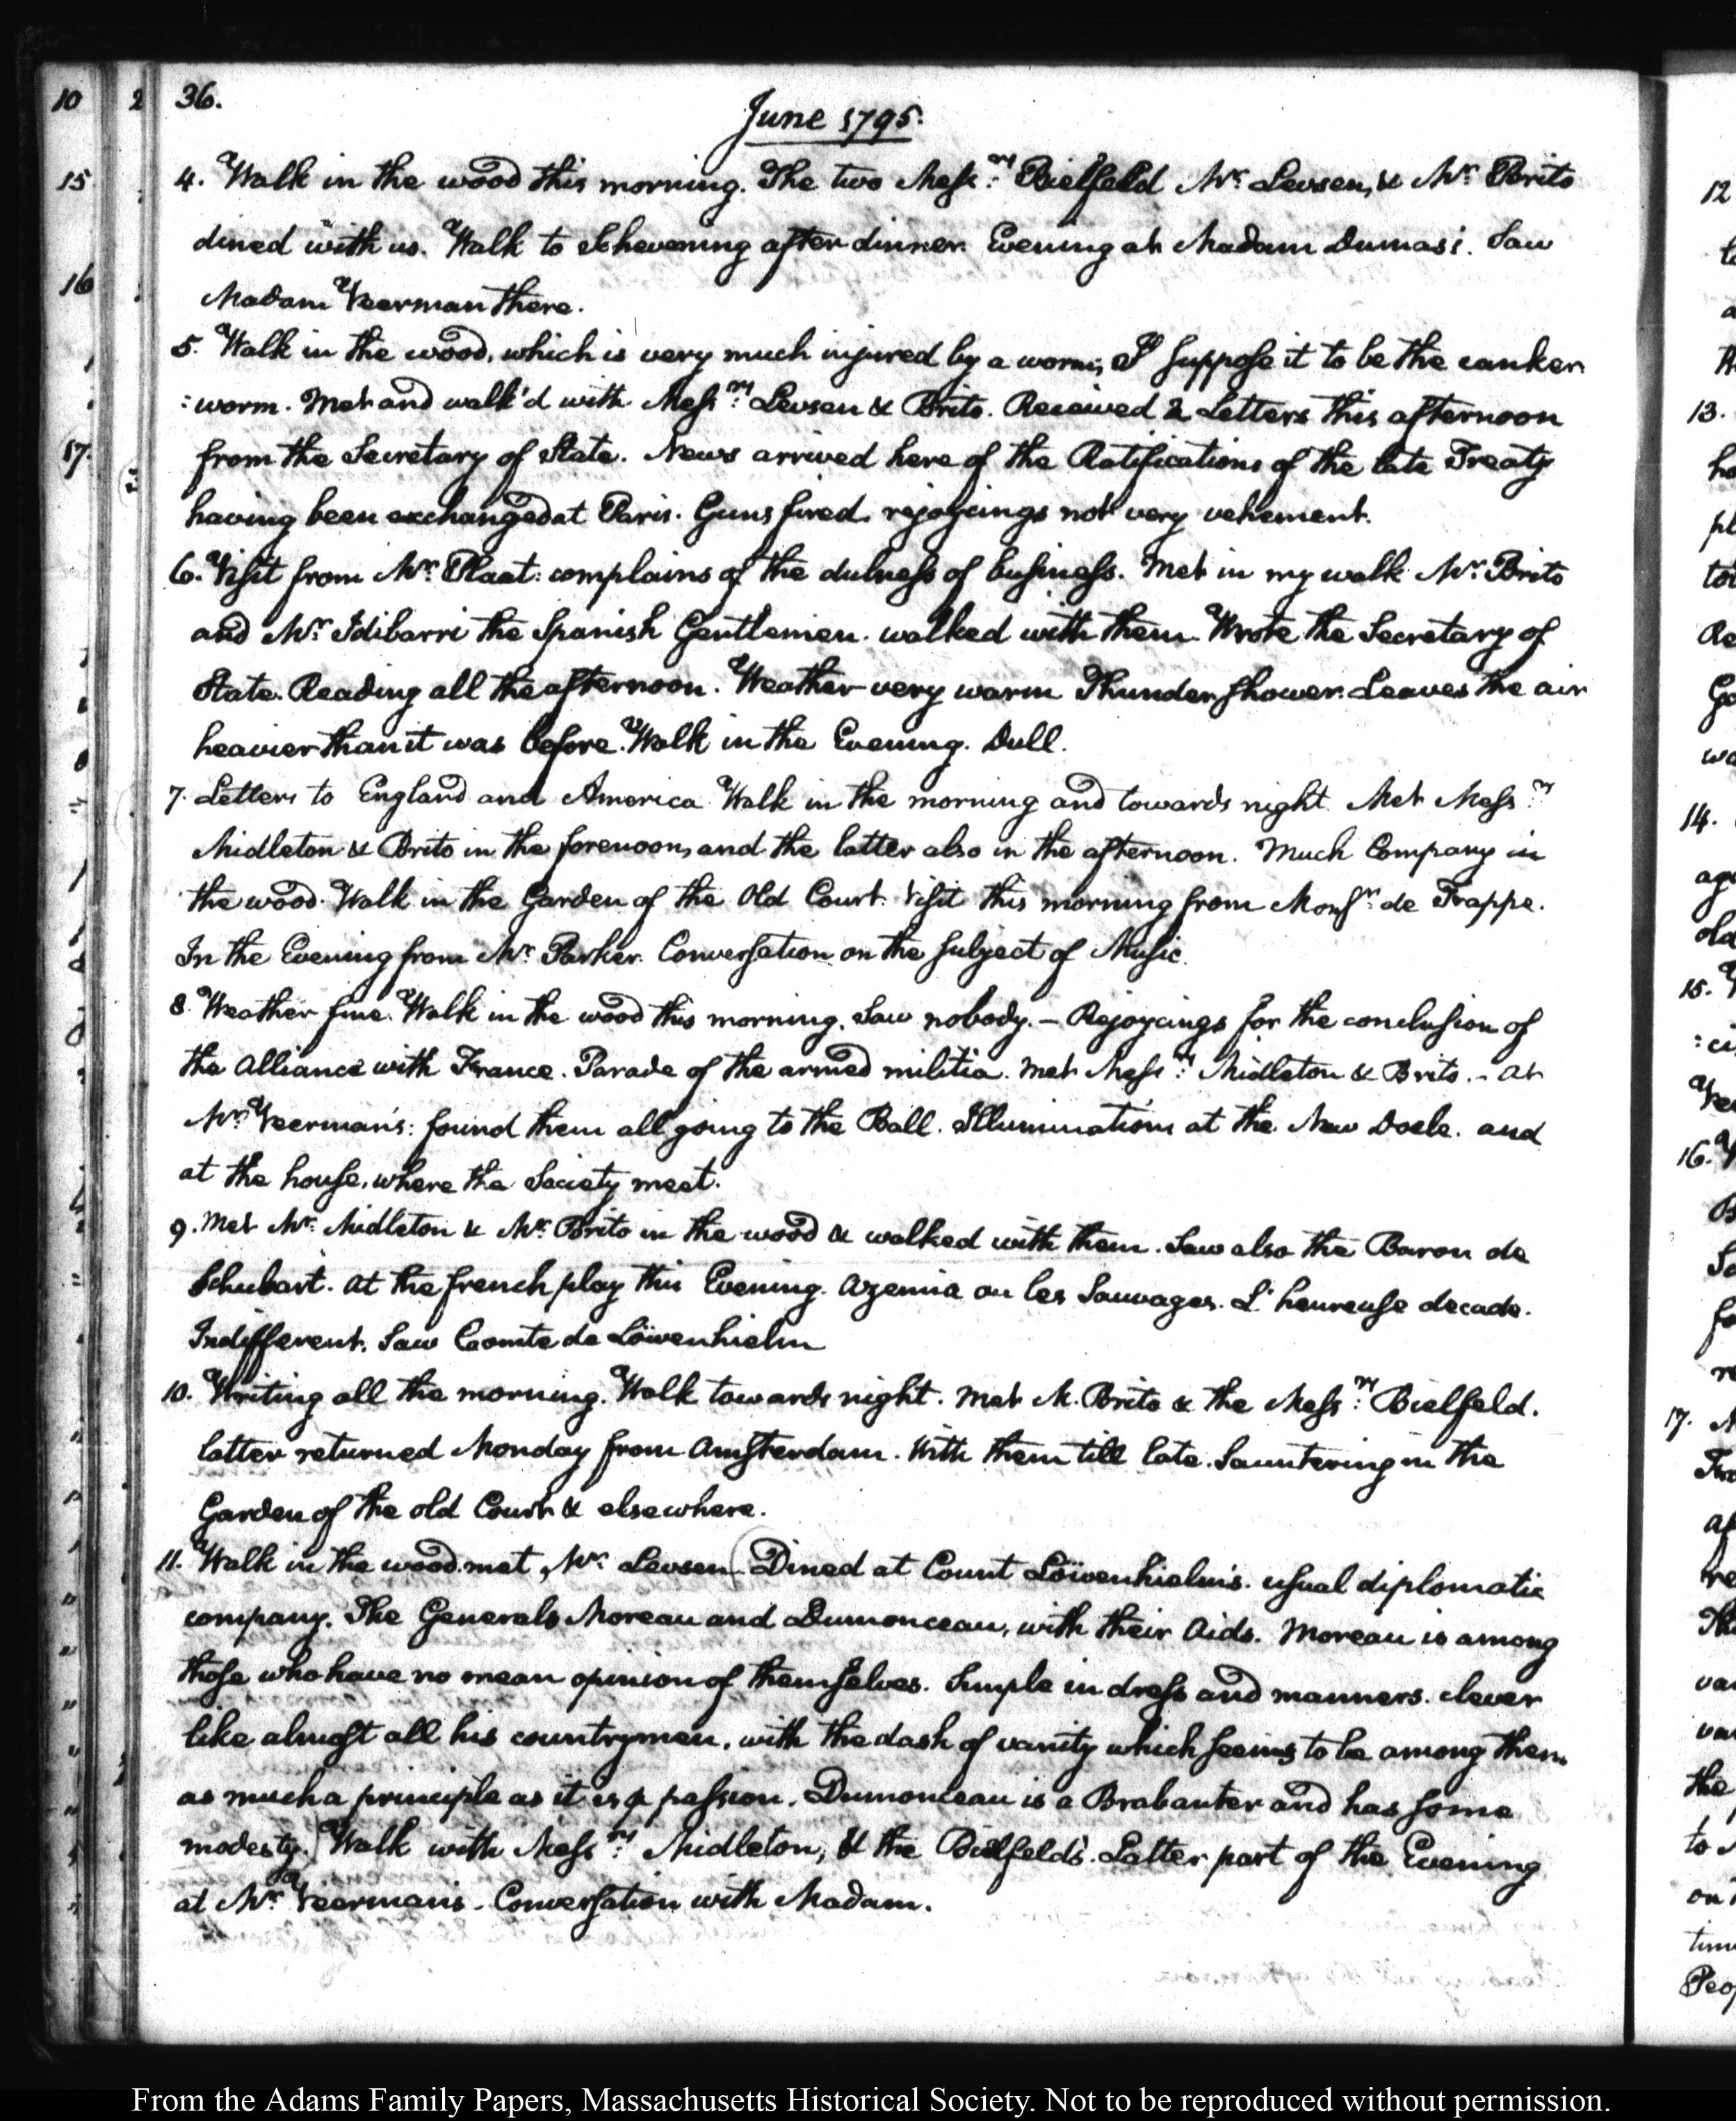 36.
June 1795.
4. Walk in the wood this morning. The two Mess:rs Bielfeld Mr. Levsen, & Mr. Brito
dined with us. Walk to Schevening after dinner. Evening at Madam Dumas's. Saw
Madam Veerman there.
5. Walk in the wood, which is very much injured by a worm; I suppose it to be the canker
:worm. Met and walk'd with Mess:rs Levsen & Brito. Received 2 Letters this afternoon
from the Secretary of State. News arrived here of the Ratifications of the late Treaty
having been exchanged at Paris. Guns fired. rejoycings not very vehement.
6. Visit from Mr. Plaat: complains of the dulness of business. Met in my walk Mr. Brito
and Mr. Idibarri the Spanish Gentlemen. walked with them. Wrote the Secretary of
State. Reading all the afternoon. Weather very warm Thunder shower. Leaves the air
heavier than it was before. Walk in the Evening. Dull.
7. Letters to England and America. Walk in the morning and towards night. Met Mess:rs
Midleton & Brito in the forenoon, and the latter also in the afternoon. Much Company in
the wood. Walk in the Garden of the Old Court. Visit this morning from Monsr. de Trappe.
In the Evening from Mr. Parker. Conversation on the subject of Music.
8. Weather fine. Walk in the wood this morning. Saw nobody. — Rejoycings for the conclusion of
the Alliance with France. Parade of the armed militia. Met Mess:rs Midleton & Brito. — At
Mr. Veerman's: found them all going to the Ball. Illuminations at the New Doele. and
at the house, where the Society meet.
9. Met Mr. Midleton & Mr. Brito in the wood & walked with them. Saw also the Baron de
Schubart. At the french play this Evening. Azemia ou les Sauvages. L'heureuse decade.
Indifferent. Saw Comte de Löwenhielm
10. Writing all the morning. Walk towards night. Met M. Brito & the Mess:rs Bielfeld.
latter returned Monday from Amsterdam. With them till late. Sauntering in the
Garden of the old Court & elsewhere.
11. Walk in the wood. met, Mr. Levsen. Dined at Count Löwenhielm's. usual diplomatic
company. The Generals Moreau and Dumonceau, with their Aids. Moreau is among
those who have no mean opinion of themselves. Simple in dress and manners. clever
like almost all his countrymen, with the dash of vanity which seems to be among them
as much a principle as it is a passion. Dumonceau is a Brabanter and has some
modesty. Walk with Mess:rs Midleton, & the Bielfelds. Latter part of the Evening
at Mr. Veerman's. Conversation with Madam.
From the Adams Family Papers, Massachusetts Historical Society. Not to be reproduced without permission.